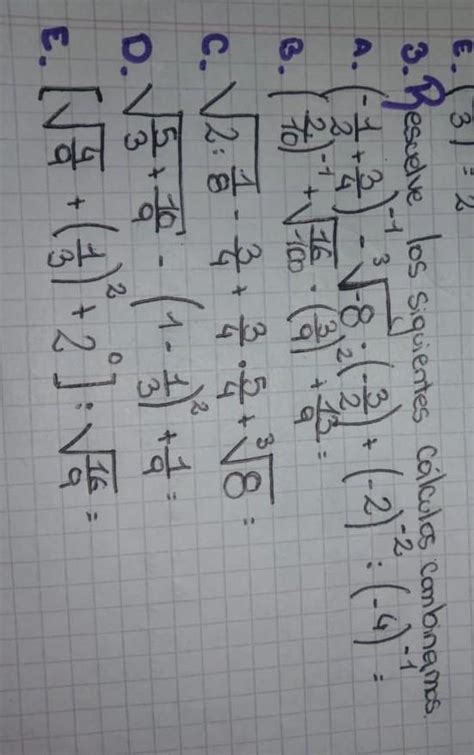 3. Resuelve los siguientes cálculos combinamos.
A. (-1/2 + 3/4)^-1 - ∛-8 · (-3/2) + (-2)^-2 : (-4)^-1 =
B. (2/10)^-1 + √(16/100) · (3/9)^2 + 13/9 =
C. √(2 : 1/8) - 3/4 + 3/4 · 5/4 + ∛8 =
D. √(5/3 + 10/9) - (1 - 1/3)^2 + 1/9 =
E. [√(4/9) + (1/3)^2 + 2^0] : √(16/9) =